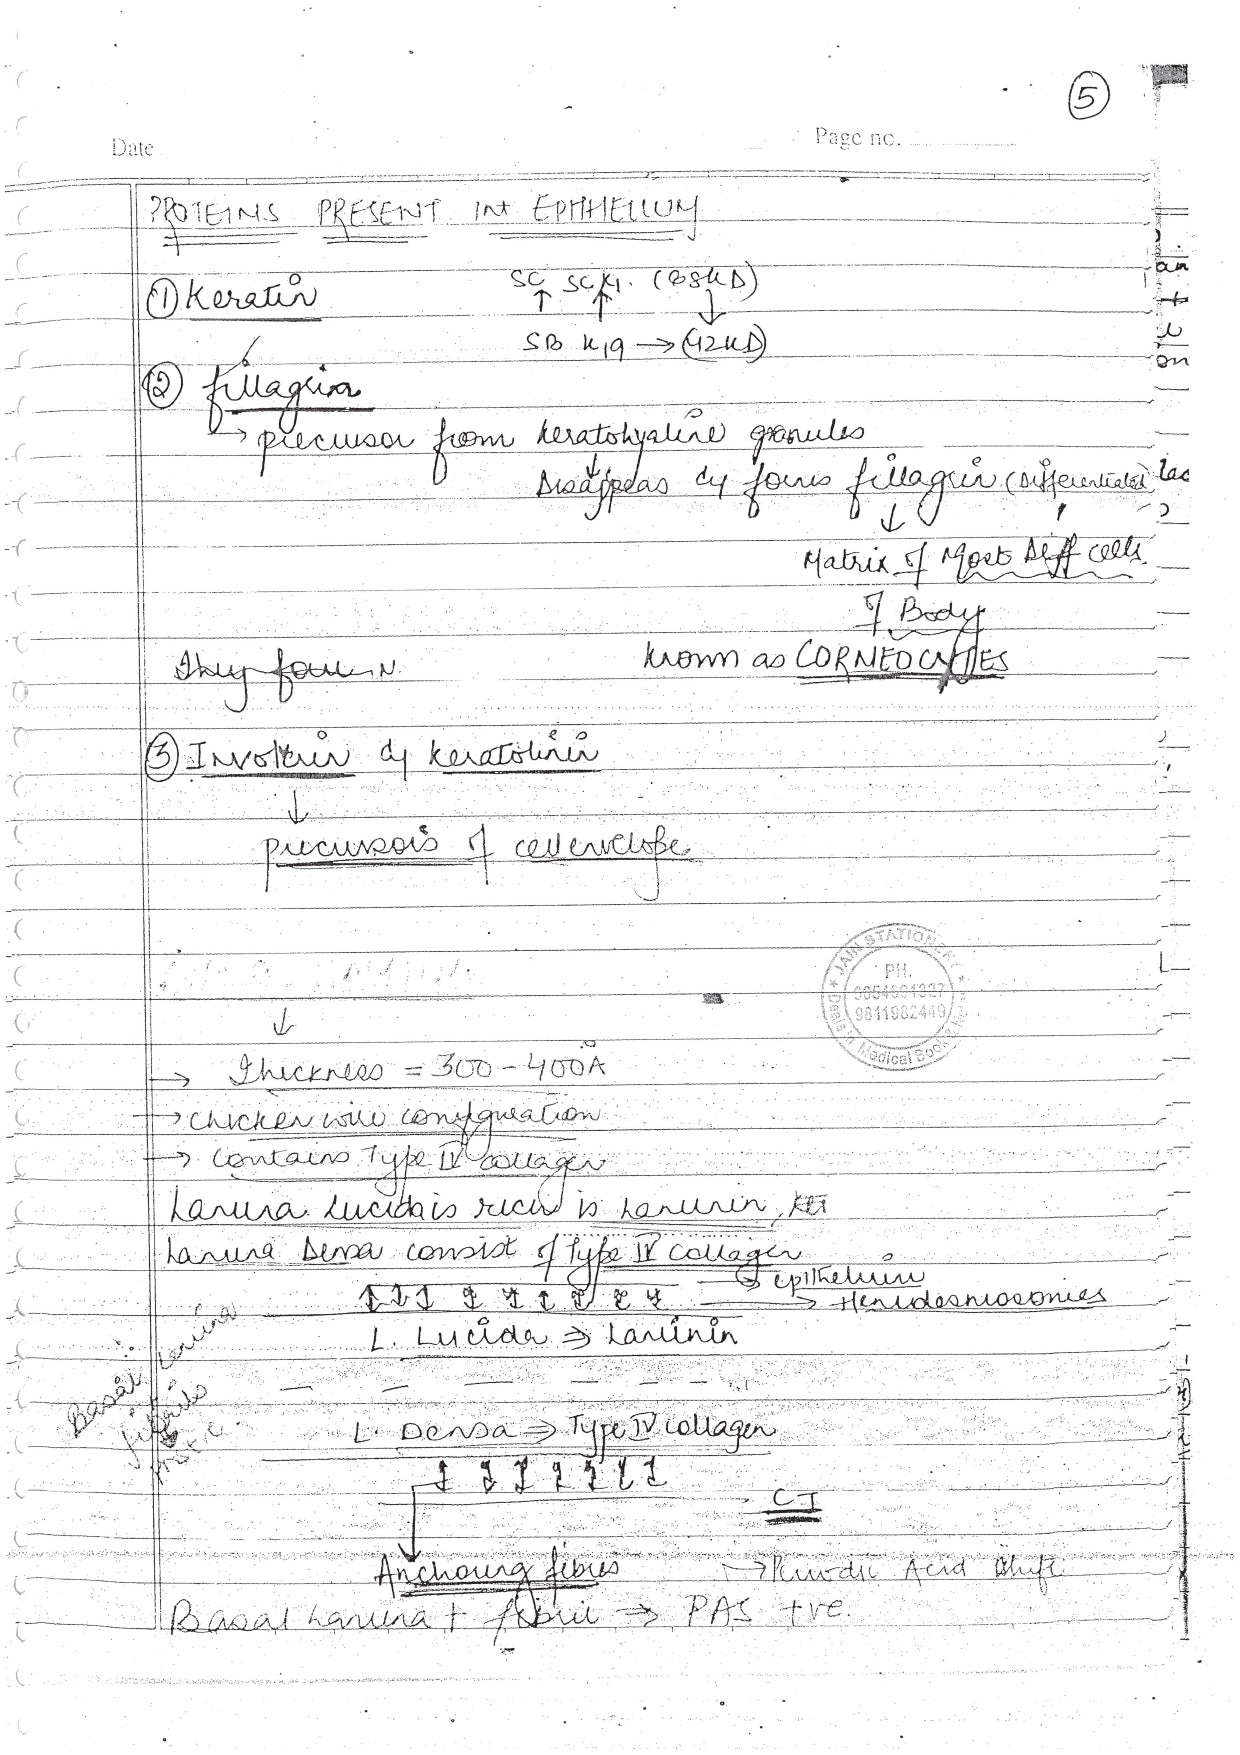 5
Date
Page no.
PROTEINS PRESENT INt EPITHELIUM
① Keratin
SC SC K1. (68KD)
↑ ↑ ↓
SB K19 → (42KD)
② fillagrin
→ precursor from keratohyaline granules
↓
Disappeas & forms fillagrin (Differentiated
↓
Matrix of Most Diff cells.
of Body
They form N.
known as CORNEOCYTES
③ Involcrin & keratolinin
↓
precursors of cell envelope
JAIN STATIONERY
PH.
9811982449
Medical Book
↓
→ Thickness = 300 - 400Å
→ chicken wire configuration
→ contains Type IV collagen
Lamina lucida is rich is Laminin,
Lamina Densa consist of Type IV collagen
→ epithelium
→ Hemidesmosomes
L. Lucida ⇒ Laminin
Basal Lamina
L. Densa ⇒ Type IV collagen
CT
Anchoring fibres
→ Periodic Acid Shift
Basal Lamina + fibril → PAS +ve.